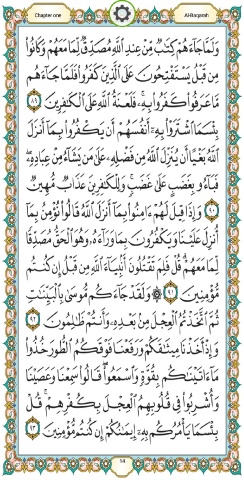 Chapter one
Al-Baqarah
وَلَمَّا جَاءَهُمْ كِتَٰبٌ مِّنْ عِندِ ٱللَّهِ مُصَدِّقٌ لِّمَا مَعَهُمْ وَكَانُوا۟
مِن قَبْلُ يَسْتَفْتِحُونَ عَلَى ٱلَّذِينَ كَفَرُوا۟ فَلَمَّا جَاءَهُم
مَّا عَرَفُوا۟ كَفَرُوا۟ بِهِۦ ۚ فَلَعْنَةُ ٱللَّهِ عَلَى ٱلْكَٰفِرِينَ ٨٩
بِئْسَمَا ٱشْتَرَوْا۟ بِهِۦٓ أَنفُسَهُمْ أَن يَكْفُرُوا۟ بِمَآ أَنزَلَ
ٱللَّهُ بَغْيًا أَن يُنَزِّلَ ٱللَّهُ مِن فَضْلِهِۦ عَلَىٰ مَن يَشَآءُ مِنْ عِبَادِهِۦ ۖ
فَبَآءُو بِغَضَبٍ عَلَىٰ غَضَبٍ ۚ وَلِلْكَٰفِرِينَ عَذَابٌ مُّهِينٌ
٩٠ وَإِذَا قِيلَ لَهُمْ ءَامِنُوا۟ بِمَآ أَنزَلَ ٱللَّهُ قَالُوا۟ نُؤْمِنُ بِمَآ
أُنزِلَ عَلَيْنَا وَيَكْفُرُونَ بِمَا وَرَآءَهُۥ وَهُوَ ٱلْحَقُّ مُصَدِّقًا
لِّمَا مَعَهُمْ ۗ قُلْ فَلِمَ تَقْتُلُونَ أَنۢبِيَآءَ ٱللَّهِ مِن قَبْلُ إِن كُنتُم
مُّؤْمِنِينَ ٩١ ۞ وَلَقَدْ جَآءَكُم مُّوسَىٰ بِٱلْبَيِّنَٰتِ
ثُمَّ ٱتَّخَذْتُمُ ٱلْعِجْلَ مِنۢ بَعْدِهِۦ وَأَنتُمْ ظَٰلِمُونَ ٩٢
وَإِذْ أَخَذْنَا مِيثَٰقَكُمْ وَرَفَعْنَا فَوْقَكُمُ ٱلطُّورَ خُذُوا۟
مَآ ءَاتَيْنَٰكُم بِقُوَّةٍ وَٱسْمَعُوا۟ ۖ قَالُوا۟ سَمِعْنَا وَعَصَيْنَا
وَأُشْرِبُوا۟ فِى قُلُوبِهِمُ ٱلْعِجْلَ بِكُفْرِهِمْ ۚ قُلْ
بِئْسَمَا يَأْمُرُكُم بِهِۦٓ إِيمَٰنُكُمْ إِن كُنتُم مُّؤْمِنِينَ ٩٣
14